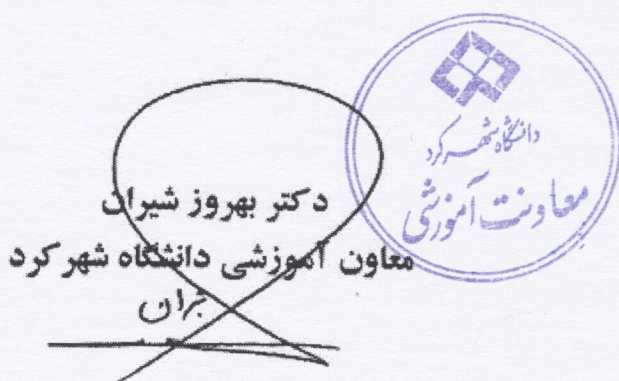 دانشگاه شهرکرد
معاونت آموزشی
دکتر بهروز شیران
معاون آموزشی دانشگاه شهر کرد